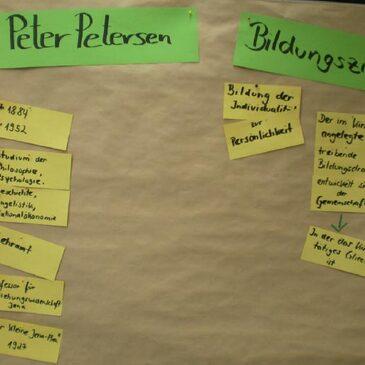 Peter Petersen
Bildungsz
1884
1952
Studium der
Philosophie,
Psychologie,
Geschichte,
Anglistik,
Nationalökonomie
Lehramt
Professor für
Erziehungswissenschaft
Jena
"Der kleine Jena-Plan"
1927
Bildung der
Individualität
zur
Persönlichkeit
Der im Kin
angelegte
treibende
Bildungsdra
entwickelt si
der
Gemeinschaft
In der das Kin
tätiges Glied
ist